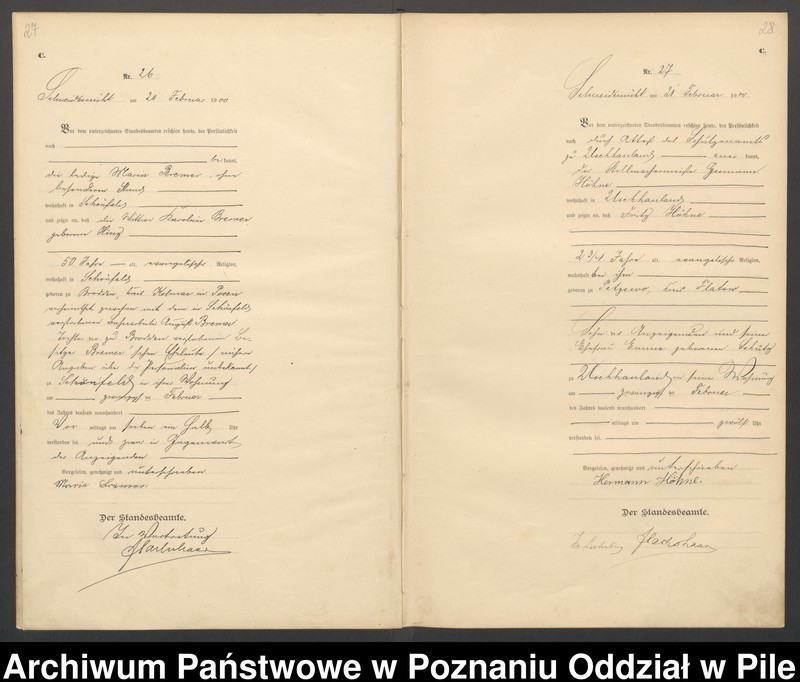 27
C.
Nr. 26
Schneidemühl am 20 Februar 1900
Vor dem unterzeichneten Standesbeamten erschien heute, der Persönlichkeit
nach
bekannt,
die ledige Marie Bremer, ohne
besonderen Stand
wohnhaft in Schönfeld
und zeigte an, daß die Wittwe Karoline Bremer
geborene
50 Jahre alt, evangelischer Religion,
wohnhaft in Schönfeld
geboren zu Brodden, Kreis Kolmar in Posen
verheirathet gewesen mit dem in Schönfeld
verstorbenen August Bremer
Tochter der zu Brodden verstorbenen Be-
sitzer Eheleute (nähere
Angaben über die Personalien unbekannt)
zu Schönfeld in ihrer Wohnung
am zwanzigsten Februar
des Jahres tausend neunhundert
Vor mittags um sieben ein halb Uhr
verstorben sei und zwar in Gegenwart
der Anzeigenden
Vorgelesen, genehmigt und unterschrieben
Marie Bremer.
Der Standesbeamte.
In Vertretung
28
C.
Nr. 27
Schneidemühl am 21 Februar 1900
Vor dem unterzeichneten Standesbeamten erschien heute, der Persönlichkeit
nach durch Attest des Schulzenamts
zu Uschhauland anerkannt,
der Stellmachermeister Hermann
Höhne
wohnhaft in Uschhauland
und zeigte an, daß Fritz Höhne
2 3/4 Jahre alt, evangelischer Religion,
wohnhaft bei ihm
geboren zu Petzewo, Kreis Flatow
Sohn des Anzeigenden und seiner
Ehefrau Emma geborenen Schulz
zu Uschhauland in seiner Wohnung
am zwanzigsten Februar
des Jahres tausend neunhundert
mittags um zwölf Uhr
verstorben sei.
Vorgelesen, genehmigt und unterschrieben
Hermann Höhne.
Der Standesbeamte.
In Vertretung
Archiwum Państwowe w Poznaniu Oddział w Pile